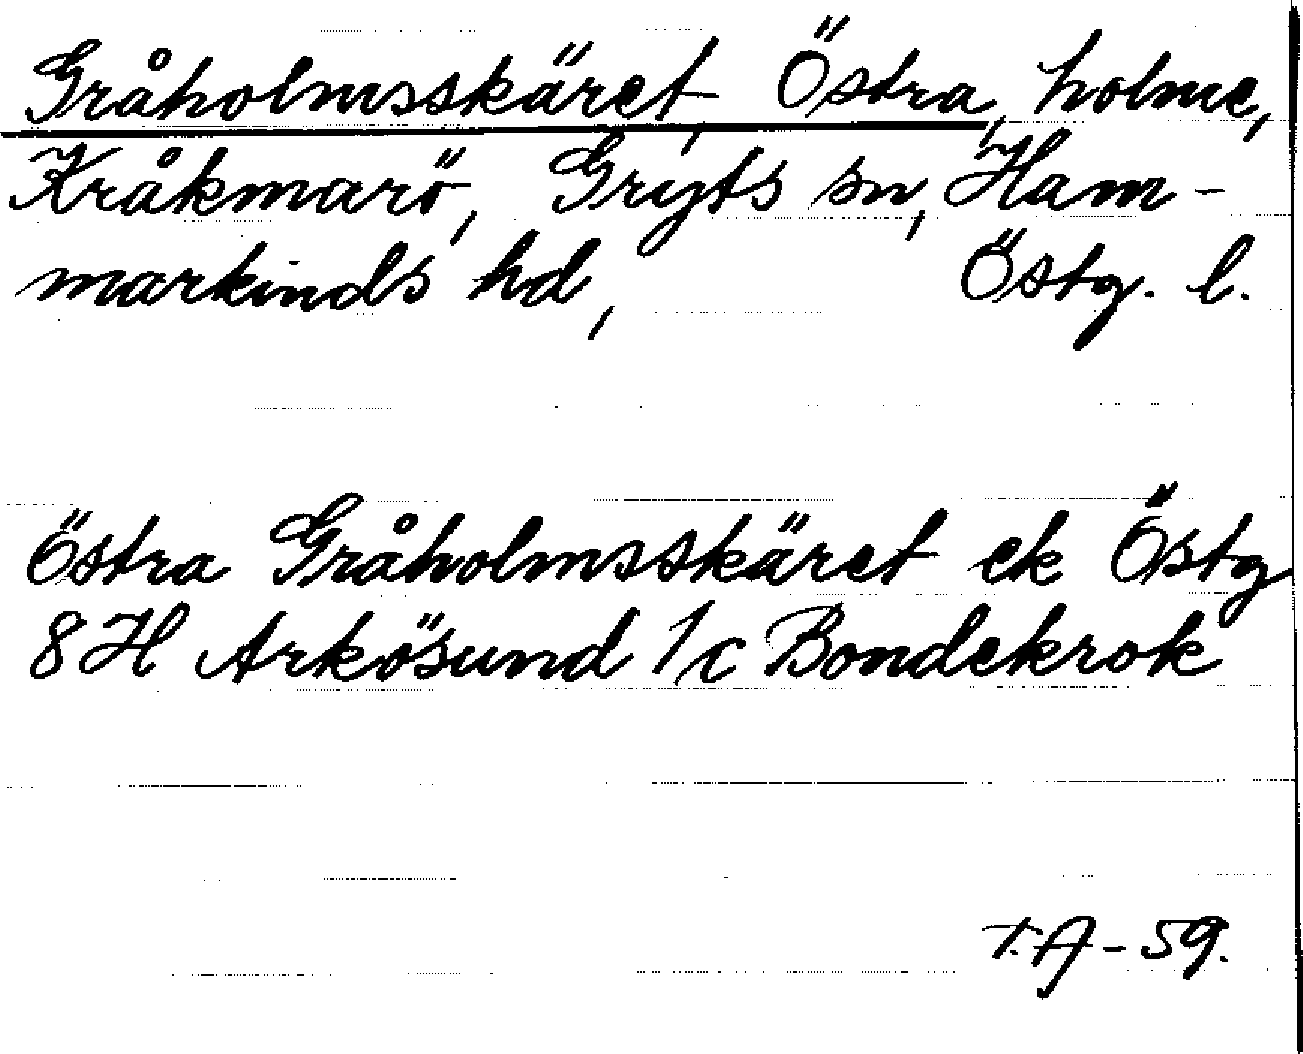 Gråholmsskäret, Östra, holme,
Kråkmarö, Gryts sn, Ham-
markinds hd, Östg. l.
Östra Gråholmsskäret ek Östg
8H Arkösund 1c Bondekrok
T.A-59.